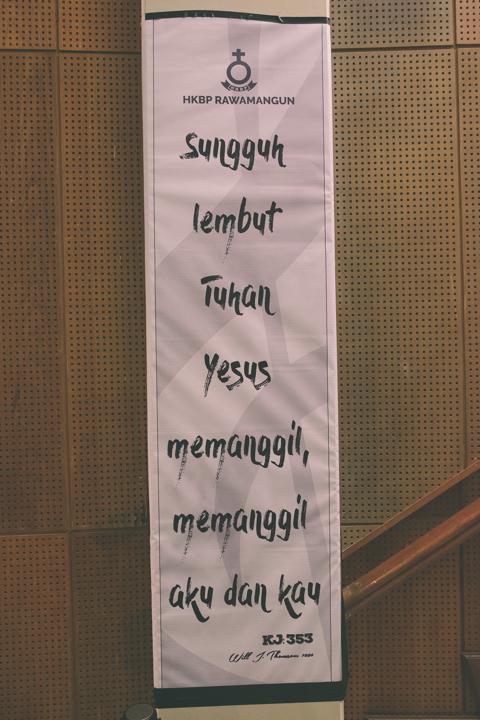 HKBP
HKBP RAWAMANGUN
Sungguh
lembut
Tuhan
Yesus
memanggil,
memanggil
aku dan kau
KJ:353
Will J. Thomson